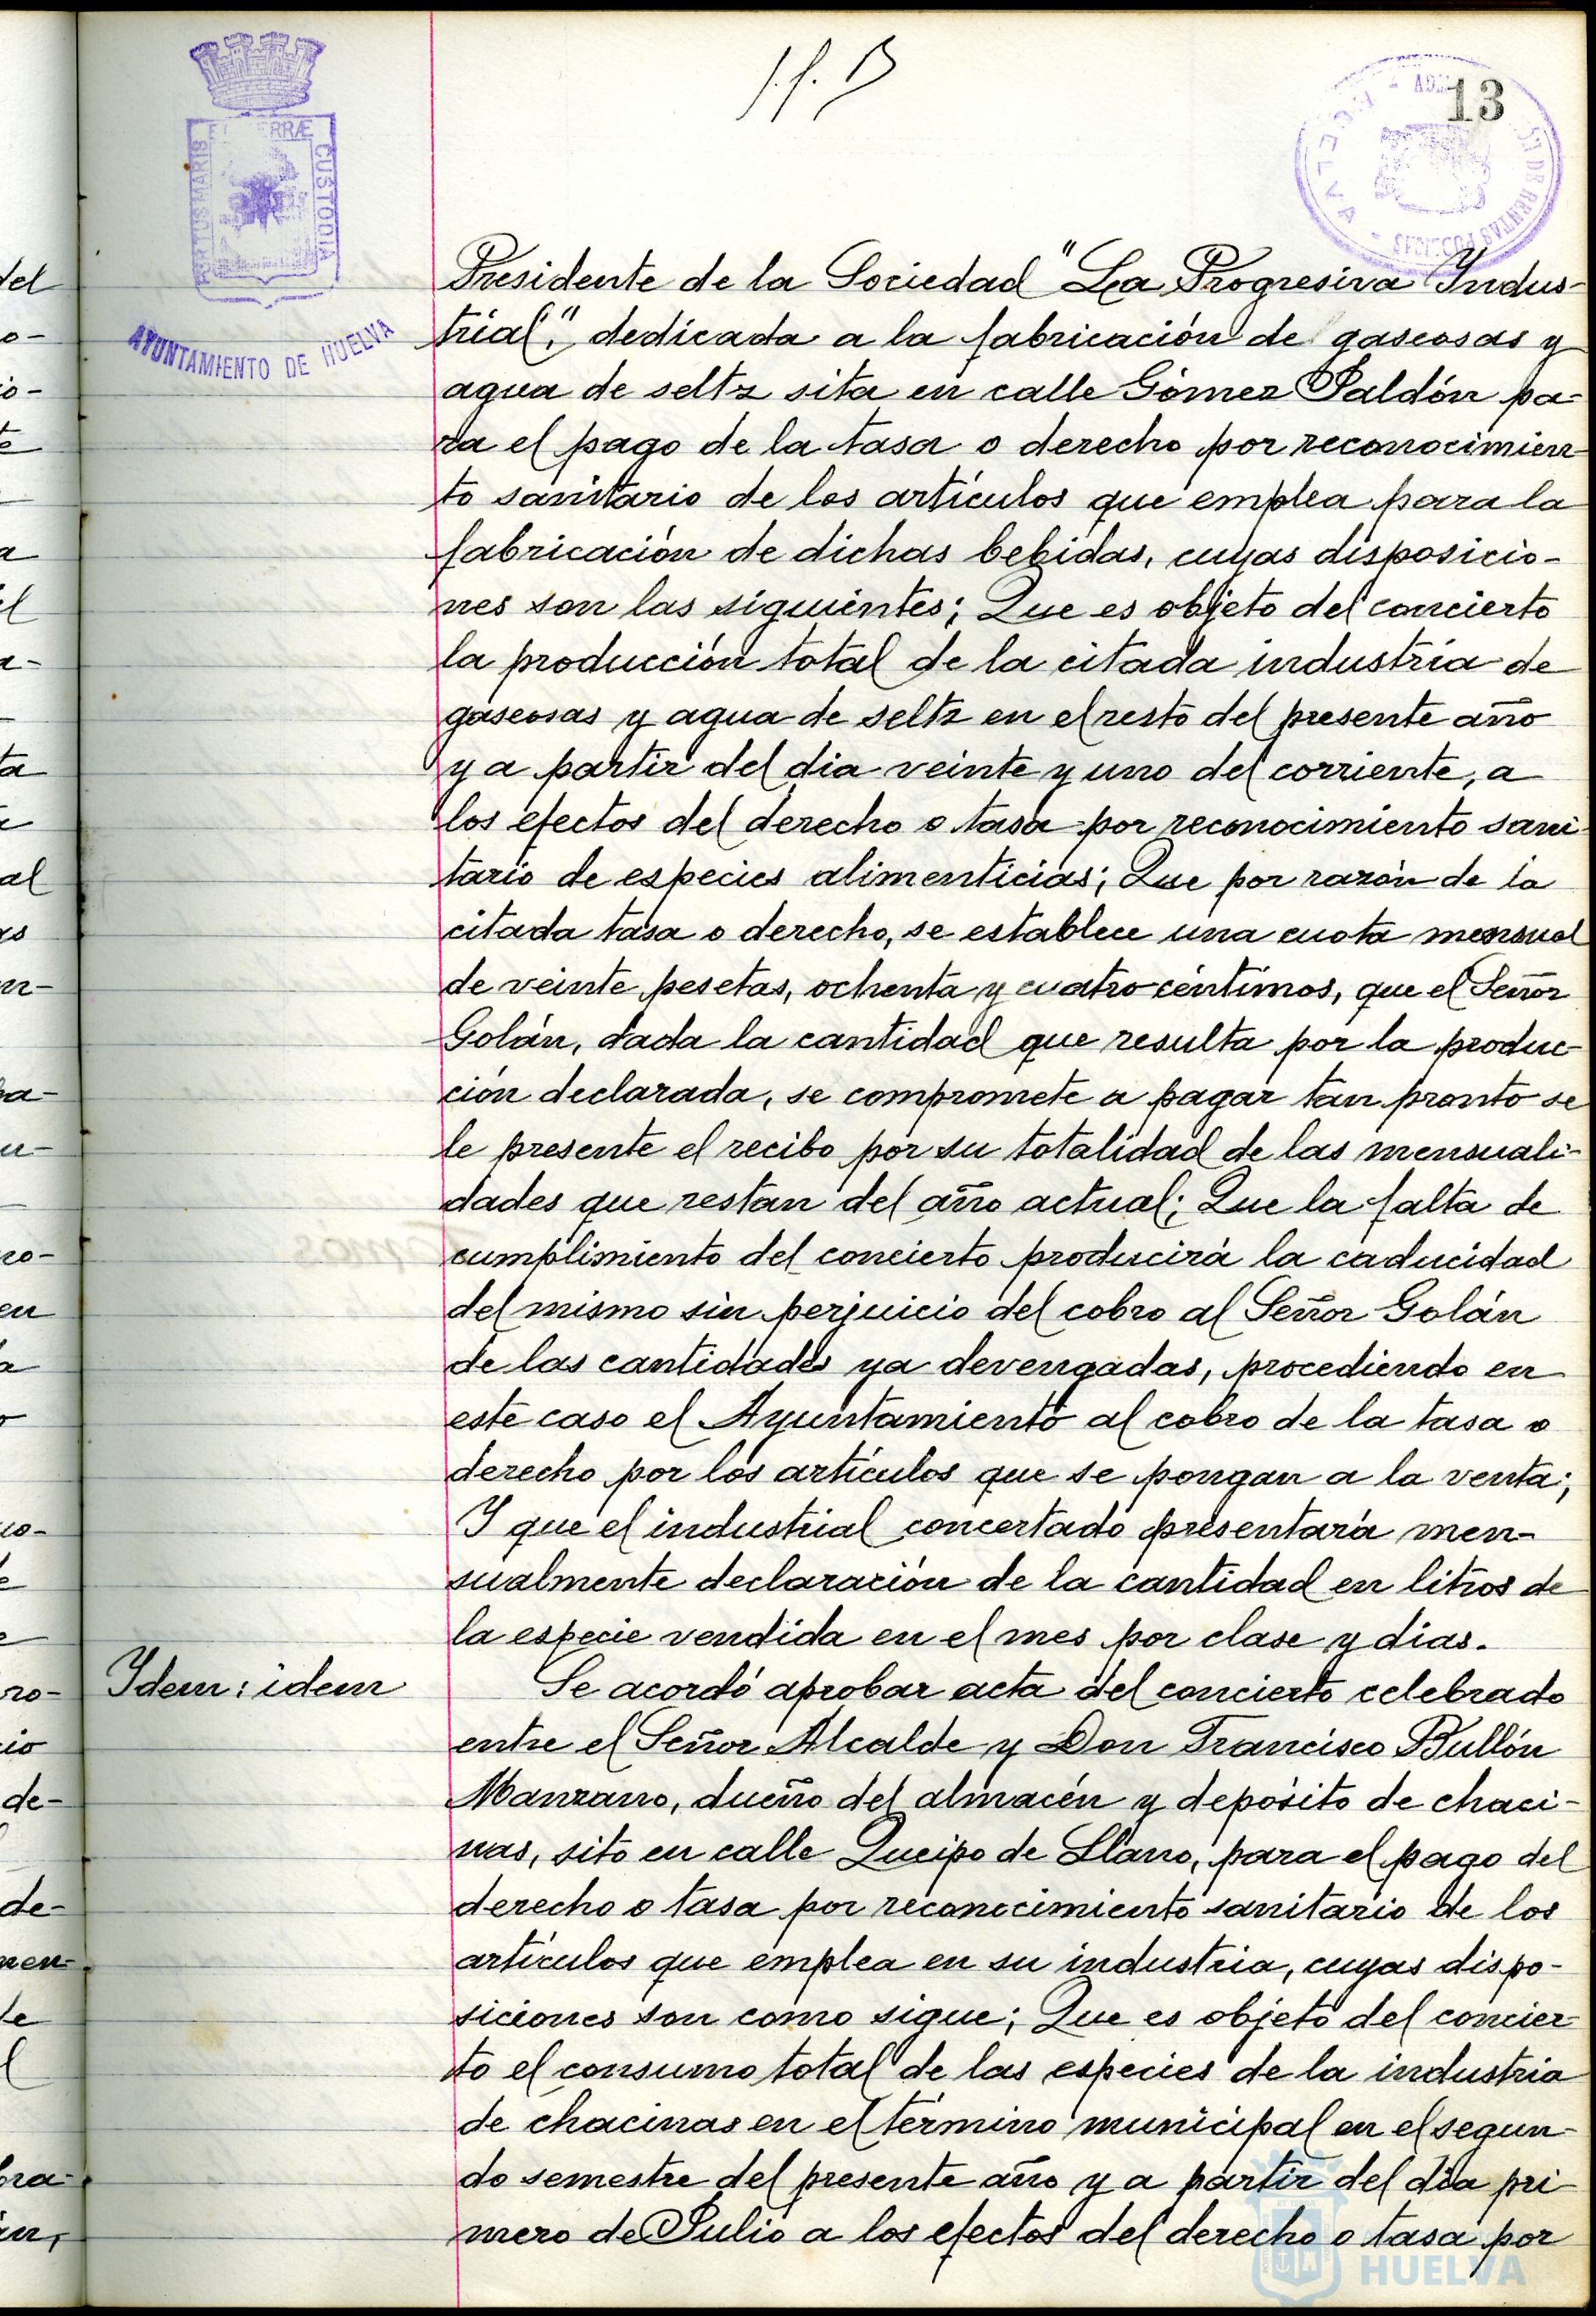 13
PORTUS MARIS ET TERRÆ CUSTODIA
AYUNTAMIENTO DE HUELVA
Presidente de la Sociedad "La Progresiva Indus-
trial", dedicada a la fabricación de gaseosas y
agua de seltz sita en calle Gómez Jaldón pa-
ra el pago de la tasa o derecho por reconocimien-
to sanitario de los artículos que emplea para la
fabricación de dichas bebidas, cuyas disposicio-
nes son las siguientes; Que es objeto del concierto
la producción total de la citada industria de
gaseosas y agua de seltz en el resto del presente año
y a partir del dia veinte y uno del corriente, a
los efectos del derecho o tasa por reconocimiento sani-
tario de especies alimenticias; Que por razón de la
citada tasa o derecho, se establece una cuota mensual
de veinte pesetas, ochenta y cuatro céntimos, que el Señor
Golán, dada la cantidad que resulta por la produc-
ción declarada, se compromete a pagar tan pronto se
le presente el recibo por su totalidad de las mensuali-
dades que restan del año actual; Que la falta de
cumplimiento del concierto producirá la caducidad
del mismo sin perjuicio del cobro al Señor Golán
de las cantidades ya devengadas, procediendo en
este caso el Ayuntamiento al cobro de la tasa o
derecho por los artículos que se pongan a la venta;
Y que el industrial concertado presentará men-
sualmente declaración de la cantidad en litros de
la especie vendida en el mes por clase y dias.
Ydem: idem
Se acordó aprobar acta del concierto celebrado
entre el Señor Alcalde y Don Francisco Bullón
Manzano, dueño del almacén y depósito de chaci-
nas, sito en calle Queipo de Llano, para el pago del
derecho o tasa por reconocimiento sanitario de los
artículos que emplea en su industria, cuyas dispo-
siciones son como sigue; Que es objeto del concier-
to el consumo total de las especies de la industria
de chacinas en el término municipal en el segun-
do semestre del presente año y a partir del dia pri-
mero de Julio a los efectos del derecho o tasa por
HUELVA